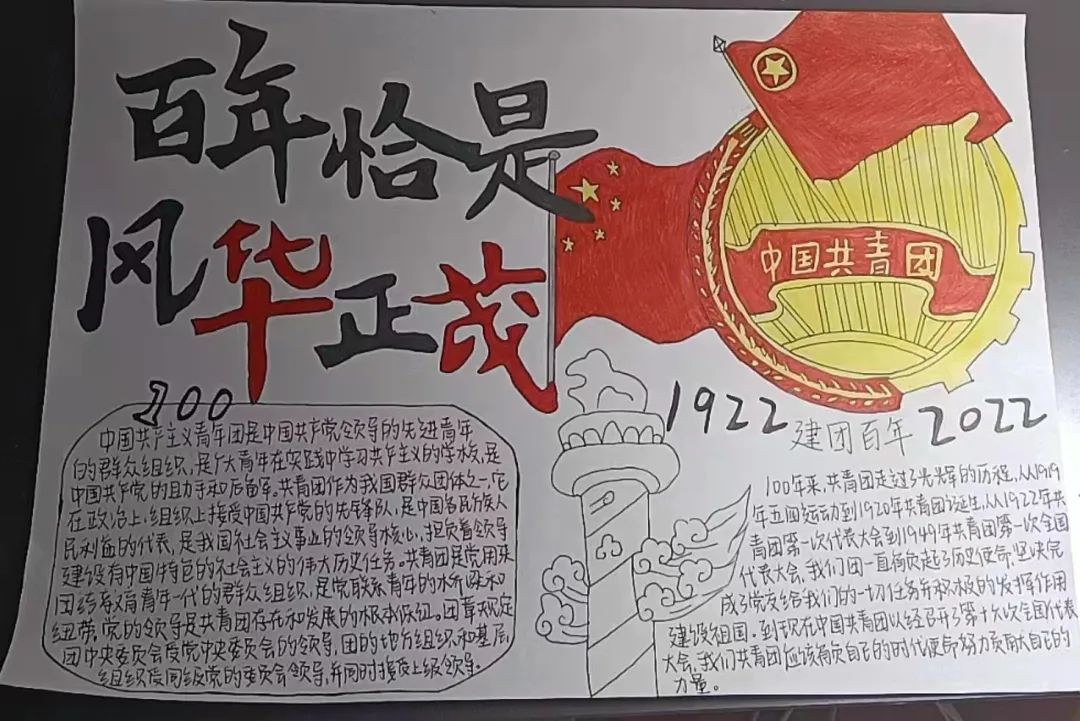 百年恰是
风华正茂
中国共青团
100
中国共产主义青年团是中国共产党领导的先进青年
的群众组织,是广大青年在实践中学习共产主义的学校,是
中国共产党的助手和后备军。共青团作为我国群众团体之一,它
在政治上,组织上接受中国共产党的先锋队,是中国各民族人
民利益的代表,是我国社会主义事业的领导核心,担负着领导
建设有中国特色的社会主义的伟大历史任务。共青团是党用来
团结教育青年一代的群众组织,是党联系青年的桥梁和
纽带,党的领导是共青团存在和发展的根本保证。团章规定
团中央委员会受党中央委员会的领导,团的地方组织和基层
组织受同级党的委员会领导,并同时接受上级领导。
1922
2022
建团百年
100年来,共青团走过了光辉的历程,从1919
年五四运动到1920年共青团诞生,从1922年共
青团第一次代表大会到1949年共青团第一次全国
代表大会,我们团一直肩负起了历史使命,坚决完
成了党交给我们的一切任务并积极的发挥作用
建设祖国。到现在中国共青团以经召开了第十六次全国代表
大会,我们共青团应该肩负自己的时代使命努力贡献自己的
力量。